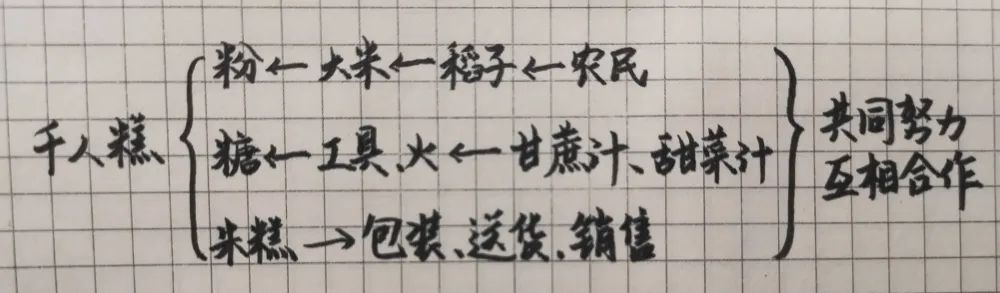 千人糕
粉←大米←稻子←农民
糖←工具、火←甘蔗汁、甜菜汁
米糕→包装、送货、销售
共同努力
互相合作